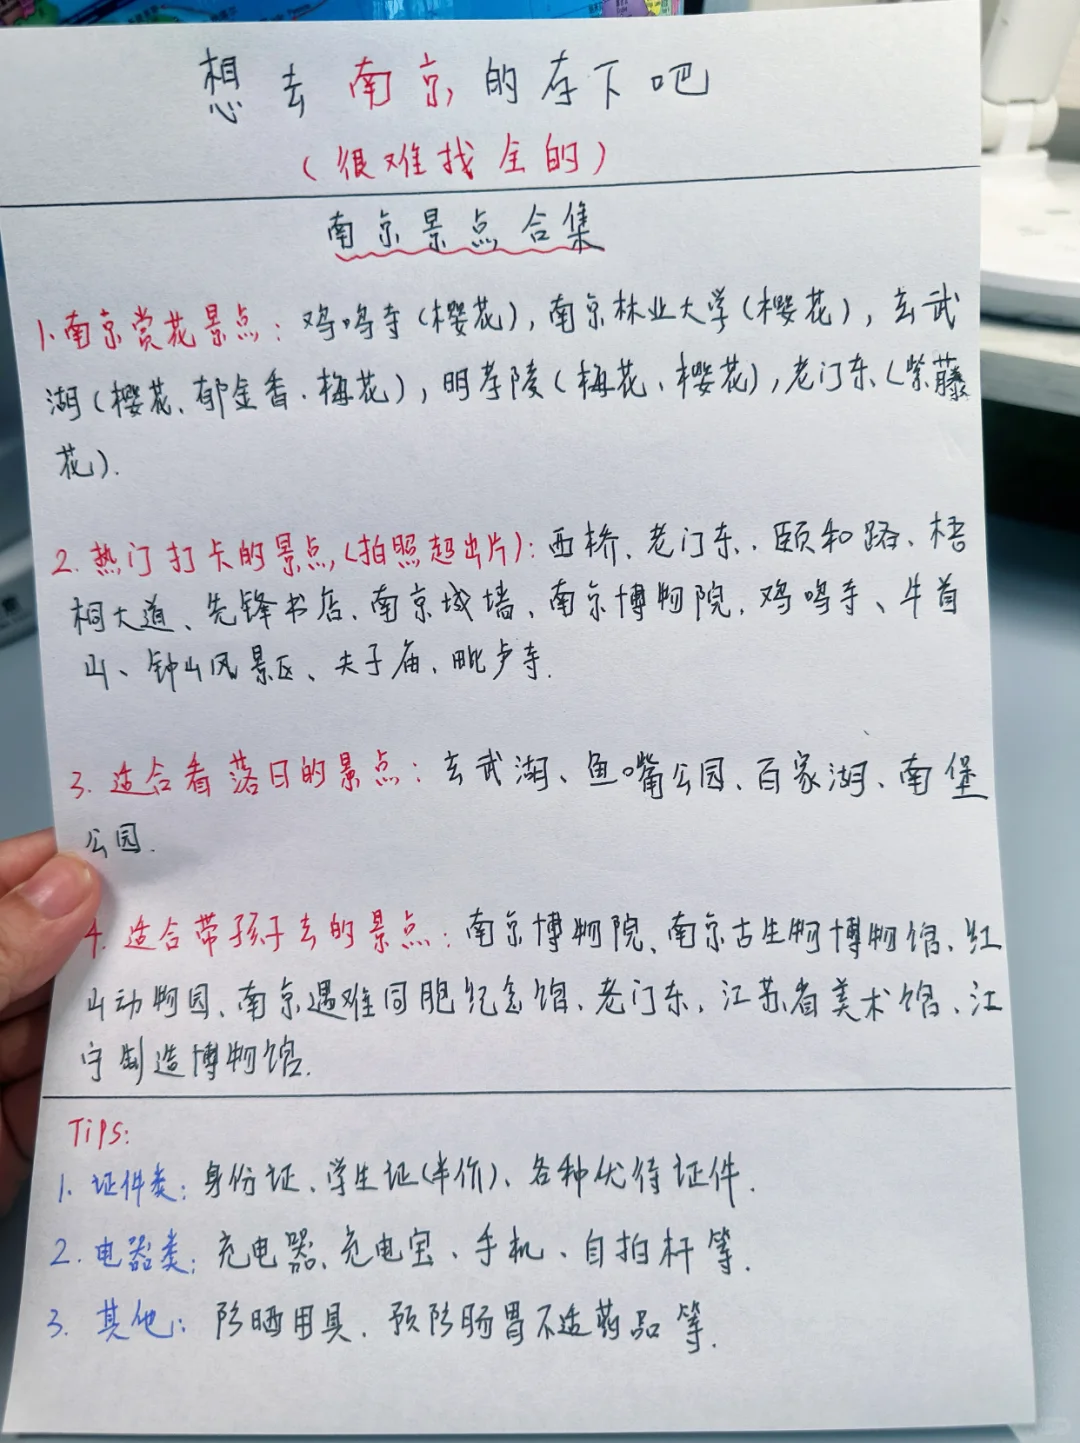 想去南京的存下吧
(很难找全的)
南京景点合集
1.南京赏花景点:鸡鸣寺(樱花),南京林业大学(樱花),玄武
湖(樱花、郁金香、梅花),明孝陵(梅花、樱花),老门东(紫藤
花).
2.热门打卡的景点(拍照超出片):西桥、老门东、颐和路、梧
桐大道、先锋书店、南京城墙、南京博物院、鸡鸣寺、牛首
山、钟山风景区、夫子庙、毗卢寺.
3.适合看落日的景点:玄武湖、鱼嘴公园、百家湖、南堡
公园.
4.适合带孩子去的景点:南京博物院、南京古生物博物馆、红
山动物园、南京遇难同胞纪念馆、老门东、江苏省美术馆、江
宁制造博物馆.
Tips:
1.证件类:身份证、学生证(半价)、各种优待证件.
2.电器类:充电器、充电宝、手机、自拍杆等.
3.其他:防晒用具、预防肠胃不适药品等.